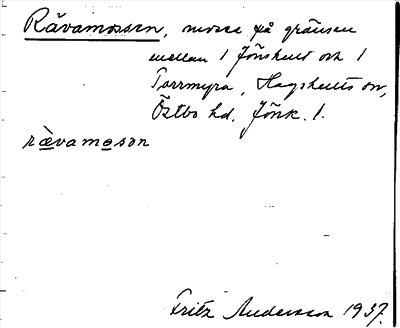 Rävamossen, mosse på gränsen
mellan 1 Jönshult och 1
Torrmyra, Hagshults sn,
Östbo hd. Jönk. l.
rävamosən
Fritz Andersson 1937.